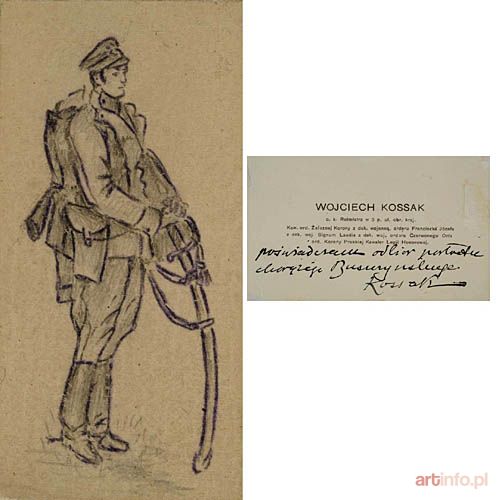 WOJCIECH KOSSAK
c. k. Rotmistrz w 3 p. uł. obr. kraj.
Kaw. ord. Żelaznej Korony z dek. wojenną, orderu Franciszka Józefa
z ord. woj. Signum Laudis z dek. woj. orderu Czerwonego Orła
ord. Korony Pruskiej Kawaler Legii Honorowej.
poświadczam odbiór portretu
chorążego
Kossak
artinfo.pl